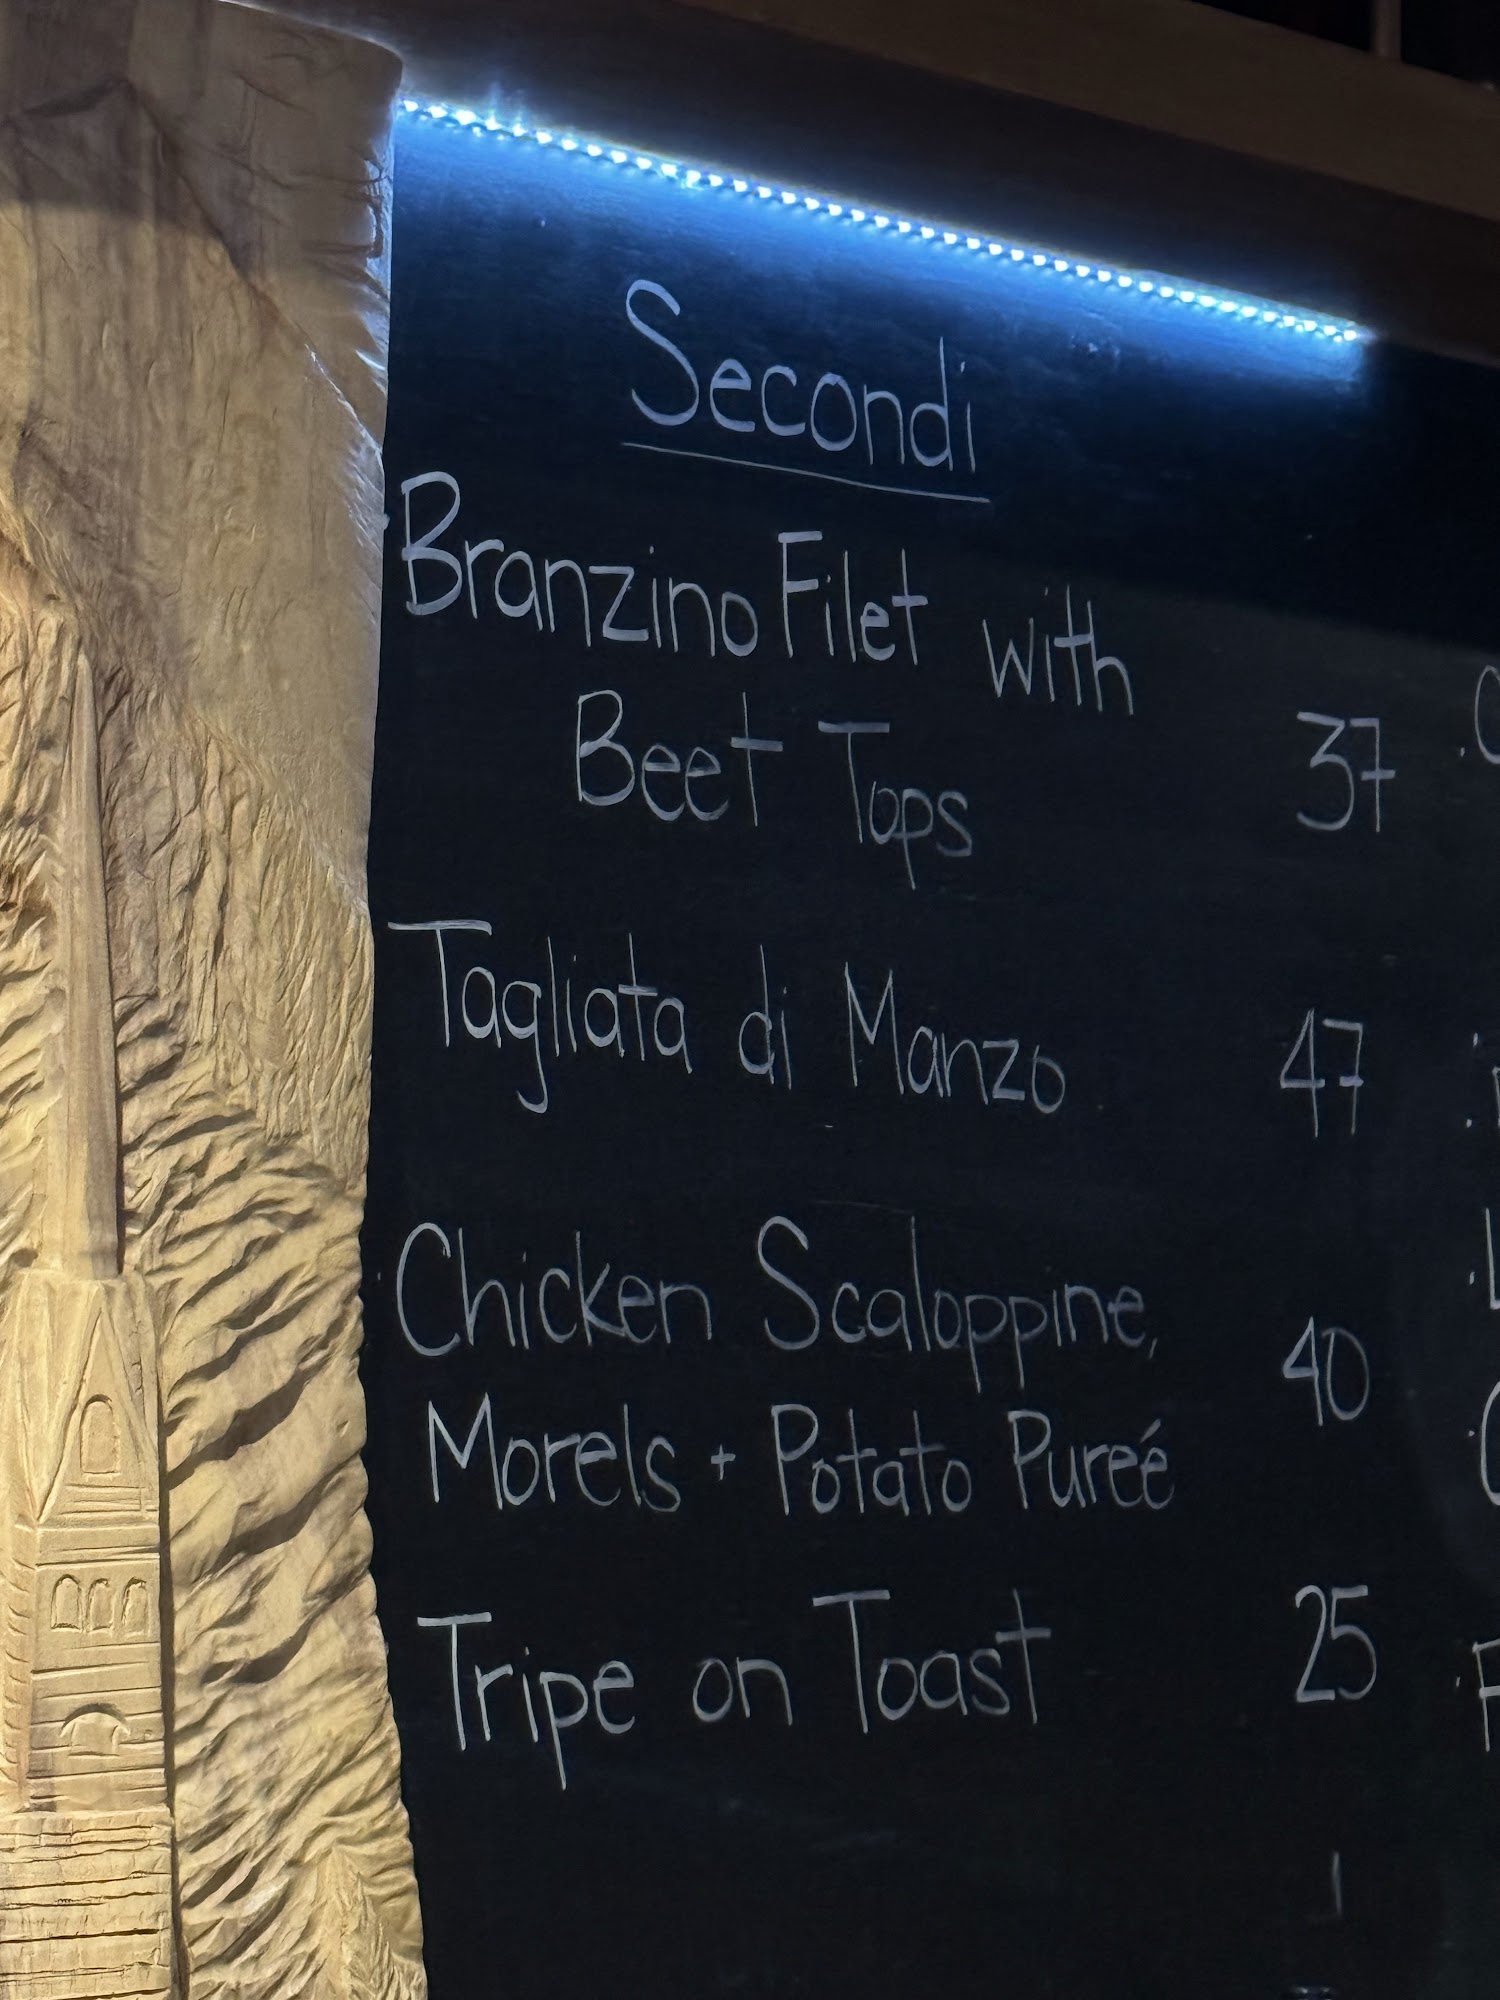 Secondi
Branzino Filet with
Beet Tops 37
Tagliata di Manzo 47
Chicken Scaloppine, 40
Morels + Potato Pureé
Tripe on Toast 25